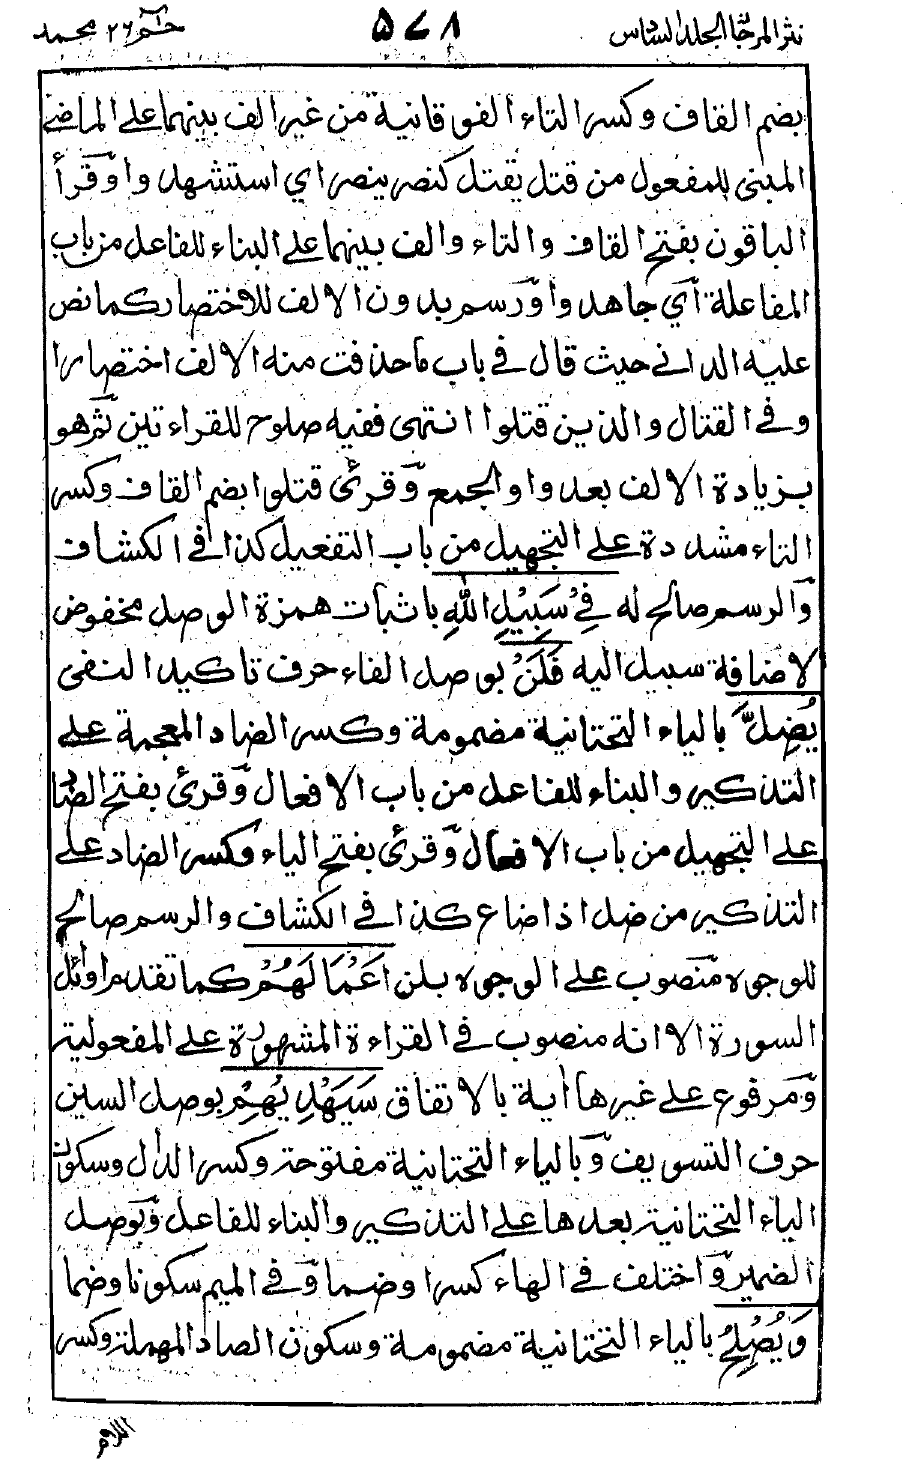 نثر المرجان الجلد السادس ٥٧٨ حٰم ٢٦ محمد
بضم القاف وكسر التاء الفوقانية من غير الف بينهما على الماضي
المبنى للمفعول من قتل يقتل كنصر ينصر اي استشهدوا وقرأ
الباقون بفتح القاف والتاء والف بينهما على البناء للفاعل من باب
المفاعلة أي جاهدوا ورسم بدون الالف للاختصار كما نص
عليه الداني حيث قال في باب ما حذفت منه الالف اختصارا
وفي القتال والذين قتلوا انتهى ففيه صلوح للقراءتين ثم هو
بزيادة الالف بعد واو الجمع وقرئ قتلوا بضم القاف وكسر
التاء مشددة على التجهيل من باب التفعيل كذا في الكشاف
والرسم صالح له فِيْ سَبِيْلِ اللهِ باثبات همزة الوصل مخفوض
لاضافة سبيل اليه فَلَنْ بوصل الفاء حرف تاكيد النفى
يُضِلَّ بالياء التحتانية مضمومة وكسر الضاد المعجمة على
التذكير والبناء للفاعل من باب الافعال وقرئ بفتح الضاد
على التجهيل من باب الافعال وقرئ بفتح الياء وكسر الضاد على
التذكير من ضل اذا ضاع كذا في الكشاف والرسم صالح
للوجوه منصوب على الوجوه بلن اَعْمَالَهُمْ كما تقدم اوائل
السورة الا انه منصوب في القراءة المشهورة على المفعولية
ومرفوع على غيرها أية بالاتفاق سَيَهْدِيْهِمْ بوصل السين
حرف التسويف وبالياء التحتانية مفتوحة وكسر الدال وسكون
الياء التحتانية بعدها على التذكير والبناء للفاعل وبوصل
الضمير واختلف في الهاء كسرا وضما وفي الميم سكونا وضما
وَيُصْلِحُ بالياء التحتانية مضمومة وسكون الصاد المهملة وكسر
اللام